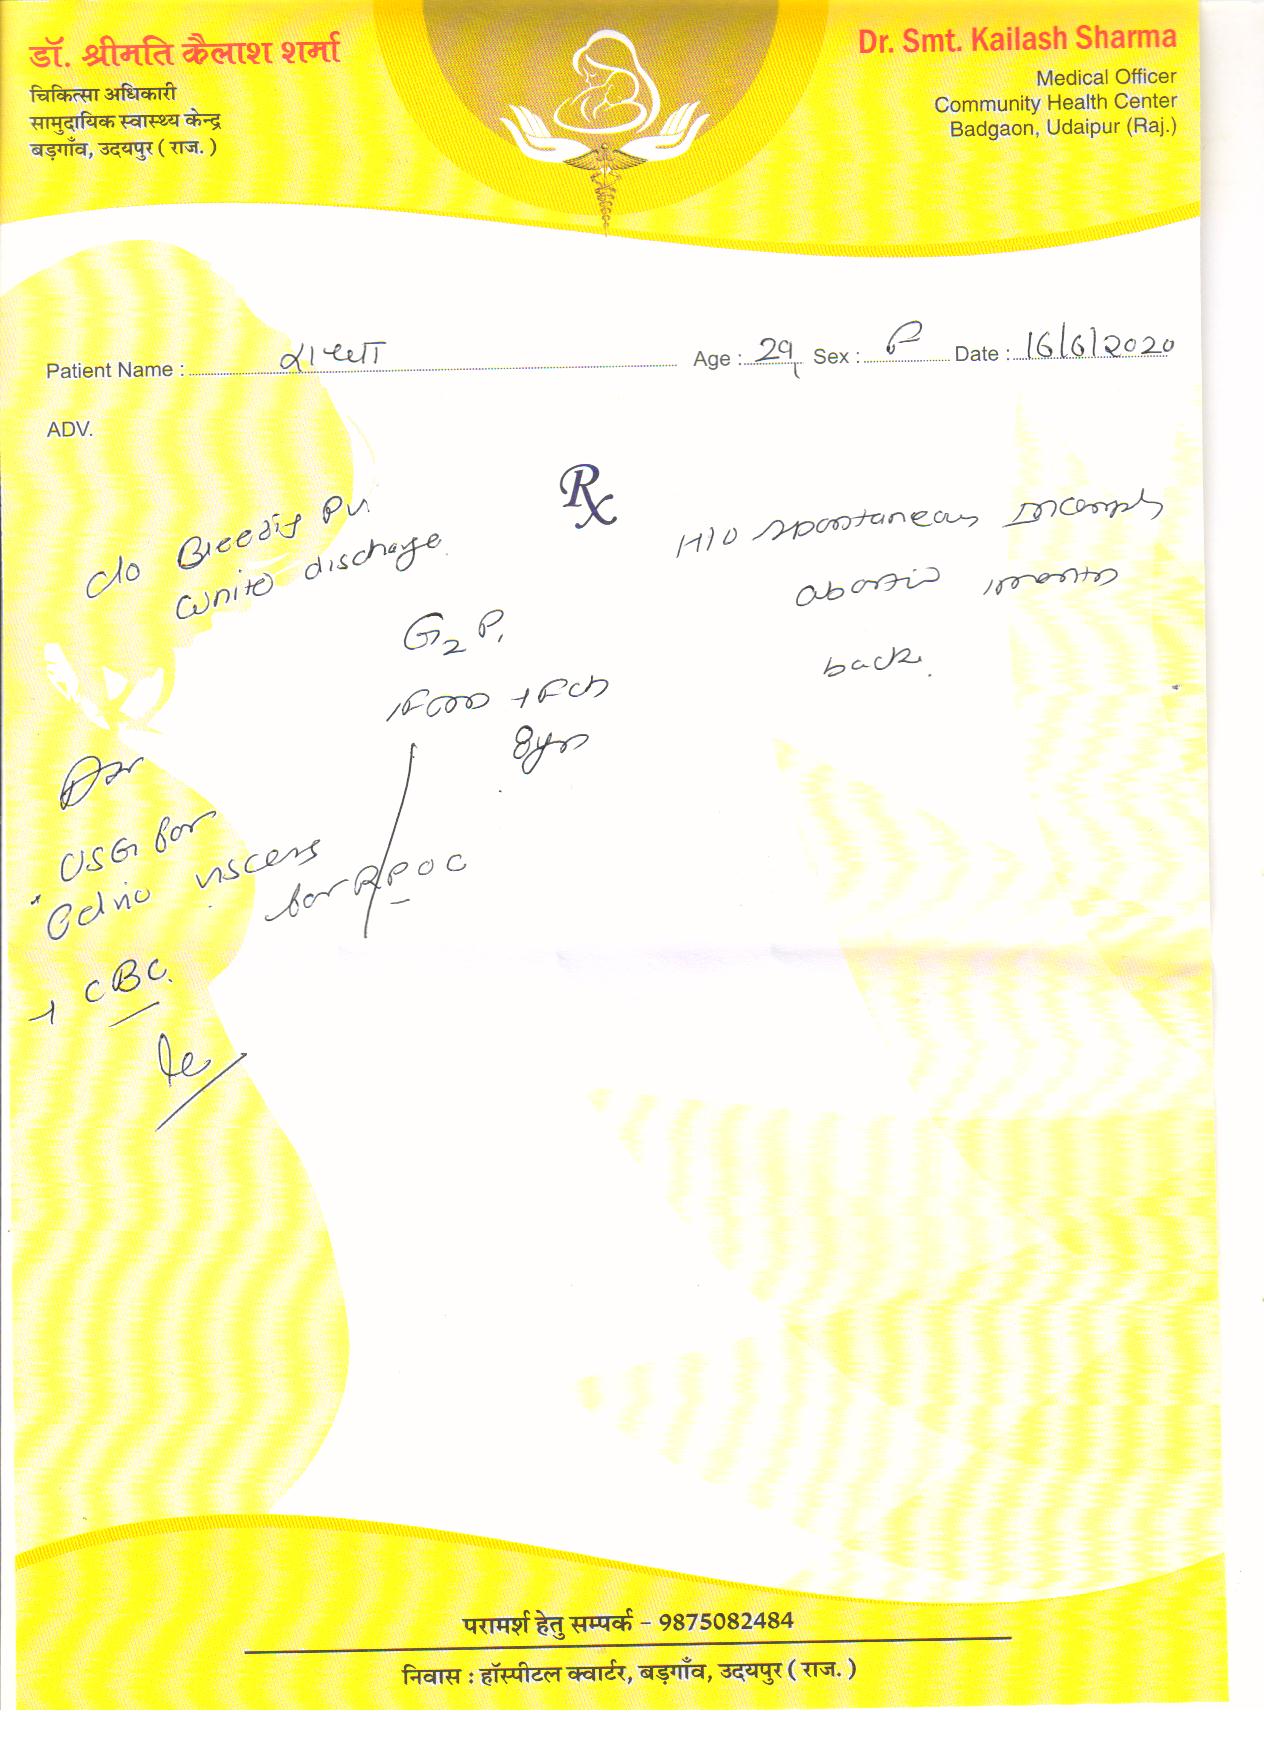 डॉ. श्रीमति कैलाश शर्मा
चिकित्सा अधिकारी
सामुदायिक स्वास्थ्य केन्द्र
बड़गाँव, उदयपुर ( राज. )
Dr. Smt. Kailash Sharma
Medical Officer
Community Health Center
Badgaon, Udaipur (Raj.)
Patient Name :
Age : 29 Sex : F Date : 16/6/2020
ADV.
Rx
C/o Bleeding PV
white discharge
H/O spontaneous Incomplete
abortion 1 month
back.
G2 P1
8yrs
USG for
Pelvic viscera
for RPOC
+ CBC.
परामर्श हेतु सम्पर्क – 9875082484
निवास : हॉस्पीटल क्वार्टर, बड़गाँव, उदयपुर ( राज. )